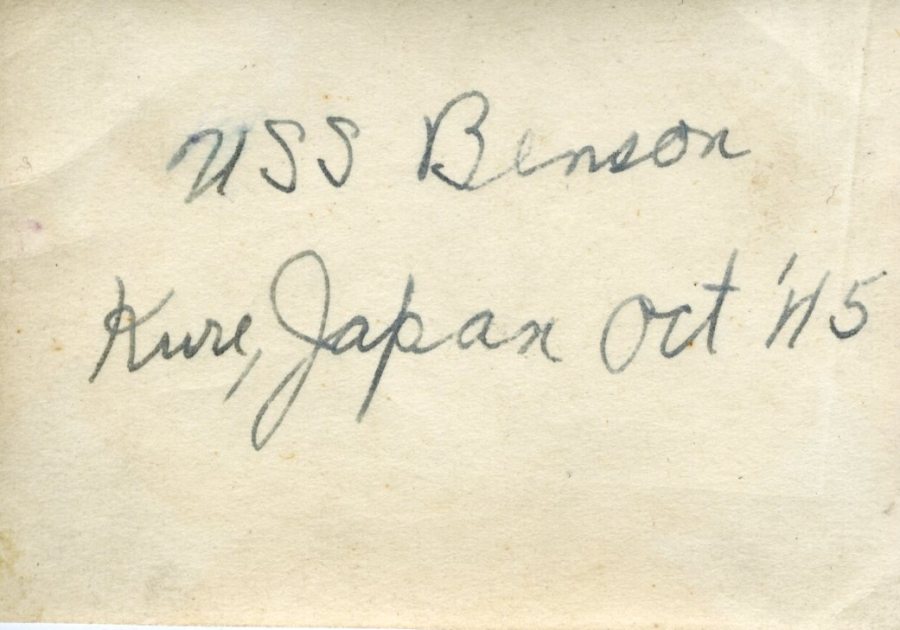 USS Benson
Kure, Japan Oct '45